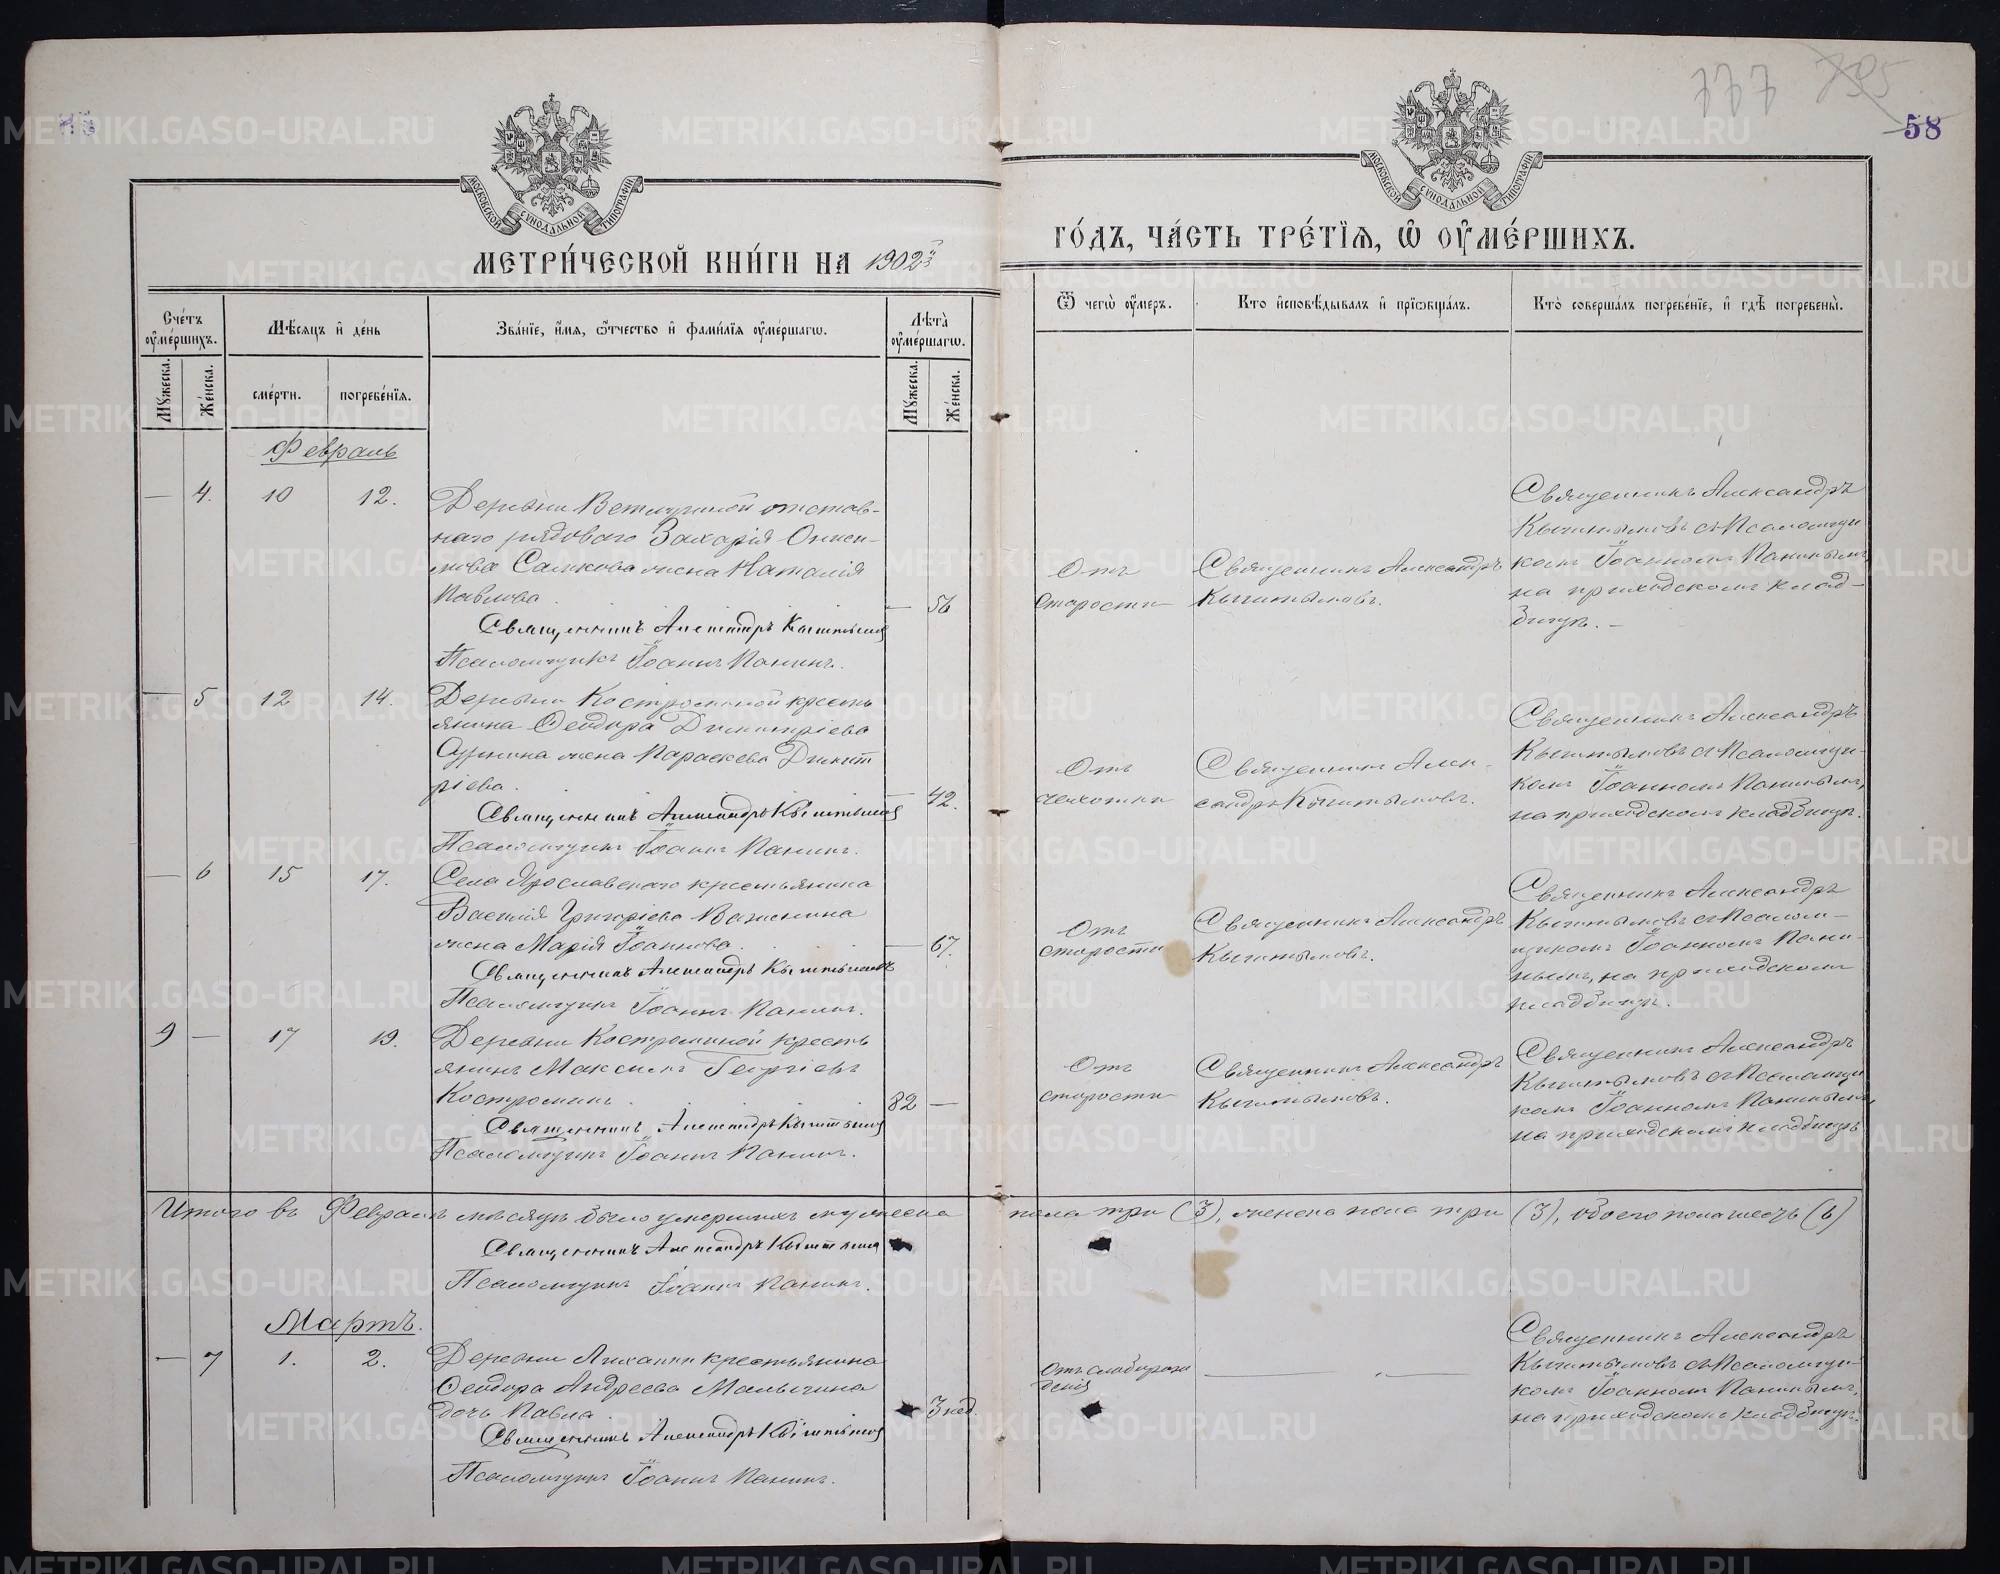 777 795
58
МОСКОВСКОЙ СѴНОДАЛЬНОЙ ТИПОГРАФІИ
МОСКОВСКОЙ СѴНОДАЛЬНОЙ ТИПОГРАФІИ
МЕТРИ́ЧЕСКОЙ КНИ́ГИ НА 1902й
ГО́ДЪ, ЧА́СТЬ ТРЕ́ТІѦ, Ѡ ОУ҆МЕ́РШИХЪ.
Сче́тъ оу҆ме́ршихъ.
Мѣ́сяцъ и҆ де́нь
Зва́нїе, и҆́мѧ, ѻ҆́тчество и҆ фами́лїѧ оу҆ме́ршагѡ.
Лѣ́та оу҆ме́ршагѡ.
Ѿ чегѡ̀ оу҆́меръ.
Кто̀ и҆сповѣ́дывалъ и҆ прїѡбща́лъ.
Кто̀ соверша́лъ погребе́нїе, и҆ гдѣ̀ погребены̀.
Мꙋ́жеска.
Же́нска.
сме́рти.
погребе́нїѧ.
Мꙋ́жеска.
Же́нска.
Февраль
— 4. 10 12.
Деревни
отстав-
наго рядоваго Захарія Ониси-
мова Салкова жена Наталія
Павлова.
— 56
Священникъ Александръ Кыштымовъ
Псаломщикъ Іоаннъ Панинъ.
Отъ
старости
Священникъ Александръ
Кыштымовъ.
Священникъ Александръ
Кыштымовъ съ Псаломщи
комъ Іоанномъ Панинымъ,
на приходскомъ клад-
бищѣ. —
— 5 12 14.
Деревни Костроминой кресть
янина Ѳеодора Димитріева
жена Параскева Димит
ріева.
— 42.
Священникъ Александръ Кыштымовъ
Псаломщикъ Іоаннъ Панинъ.
Отъ
чахотки
Священникъ Алек-
сандръ Кыштымовъ.
Священникъ Александръ
Кыштымовъ съ Псаломщи-
комъ Іоанномъ Панинымъ,
на приходскомъ кладбищѣ.
— 6 15 17.
Села Ярославскаго крестьянина
Василія Григоріева Важенина
жена Марія Іоаннова.
— 67.
Священникъ Александръ Кыштымовъ
Псаломщикъ Іоаннъ Панинъ.
Отъ
старости
Священникъ Александръ
Кыштымовъ.
Священникъ Александръ
Кыштымовъ съ Псалом-
щикомъ Іоанномъ Пани-
нымъ, на приходскомъ
кладбищѣ.
9 — 17 19.
Деревни Костроминой кресть
янинъ Максимъ Георгіевъ
Костроминъ.
82 —
Священникъ Александръ Кыштымовъ
Псаломщикъ Іоаннъ Панинъ.
Отъ
старости
Священникъ Александръ
Кыштымовъ.
Священникъ Александръ
Кыштымовъ съ Псаломщи
комъ Іоанномъ Панинымъ,
на приходскомъ кладбищѣ
Итого въ Февралѣ мѣсяцѣ было умершихъ мужеска пола три (3), женска пола три (3), обоего пола шесть (6)
Священникъ Александръ Кыштымовъ
Псаломщикъ Іоаннъ Панинъ.
Мартъ.
— 7 1. 2.
Деревни
крестьянина
Ѳеодора Андреева Малыгина
дочь Павла.
3 нед.
Священникъ Александръ Кыштымовъ
Псаломщикъ Іоаннъ Панинъ.
Отъ слаборож
денія
Священникъ Александръ
Кыштымовъ съ Псаломщи-
комъ Іоанномъ Панинымъ,
на приходскомъ кладбищѣ.
METRIKI.GASO-URAL.RU